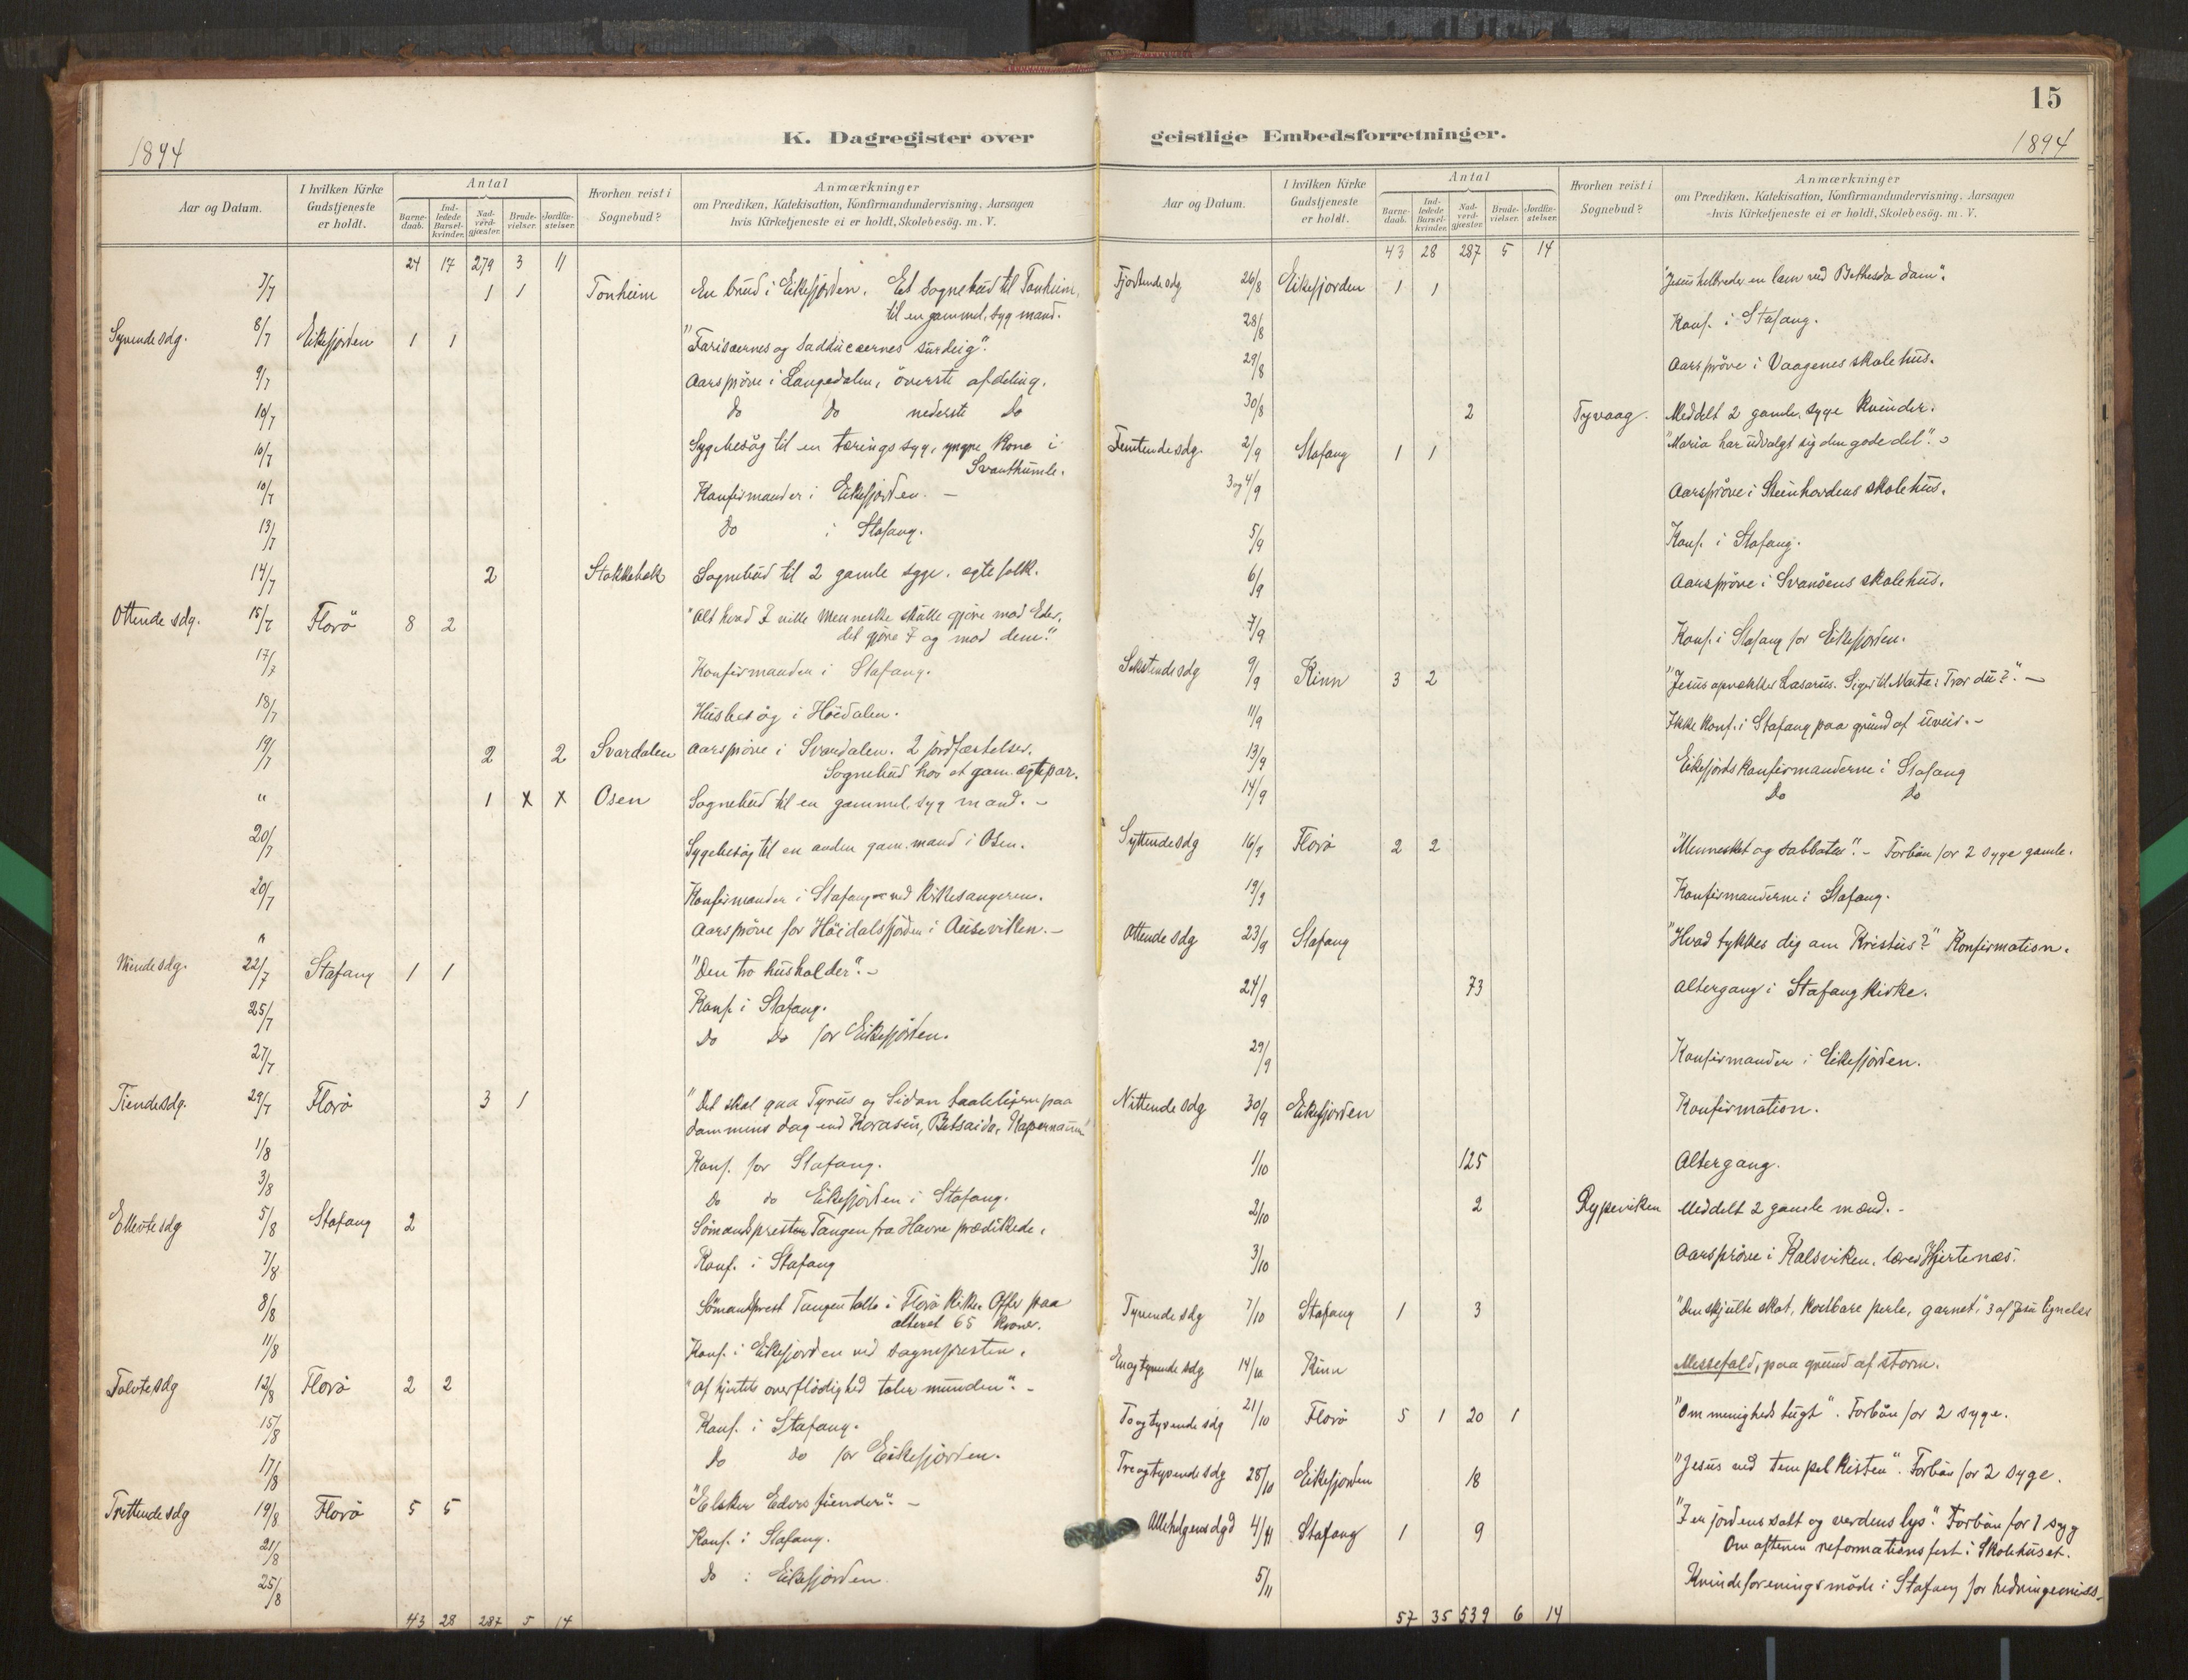 15
1894
K. Dagregister over
Aar og Datum.
I hvilken Kirke Gudstjeneste er holdt.
Antal
Barne-daab.
Ind-ledede Barsel-kvinder.
Nad-verd-gjæster.
Brude-vielser.
Jordfæ-stelser.
Hvorhen reist i Sognebud?
Anmærkninger
om Prædiken, Katekisation, Konfirmandundervisning, Aarsagen
hvis Kirketjeneste ei er holdt, Skolebesög. m. V.
24 17 279 3 11
7/7 1 1 Tonheim En brud i Eikefjorden. Et sognebud til Tonheim,
til en gammel, syg mand.
Syvende sdg. 8/7 Eikefjorden 1 1 "Farisæernes og Sadducæernes surdeig".
9/7 Aarspröve i Langedalen, överste afdeling.
10/7 do do nederste do
10/7 Sygebesög til en tæringssyg, yngre Kone i
Svanthumle.
10/7 Konfirmander i Eikefjorden. -
13/7 do i Stafang.
14/7 2 Stokkebæk Sognebud til 2 gamle syge, egtefolk.
Ottende sdg. 15/7 Florö 8 2 "Alt hvad I ville Menneske skulle gjöre mod Eder,
det gjöre I og mod dem."
17/7 Konfirmander i Stafang.
18/7 Husbesög i Höidalen.
19/7 2 2 Svardalen Aarspröve i Svardalen. 2 jordfæstelser.
Sognebud hos et gam. ægtepar.
" 1 x x Osen Sognebud til en gammel, syg mand. -
20/7 Sygebesög til en anden gam. mand i Osen.
20/7 Konfirmander i Stafang ved Kirkesangeren.
" Aarspröve for Höidalsfjorden i Ausevikken. -
Niende sdg. 22/7 Stafang 1 1 "Den tro husholder". -
25/7 Konf. i Stafang.
27/7 do do for Eikefjorden.
Tiende sdg. 29/7 Florö 3 1 "Det skal gaa Tyrus og Sidon taaleligere paa
dommens dag end Korasin, Betsaida, Kapernaum"
1/8 Konf. for Stafang.
3/8 do do Eikefjorden i Stafang.
Ellevte sdg 5/8 Stafang 2 Sömandspresten Tangen fra Havre prædikede.
7/8 Konf. i Stafang
8/8 Sömandsprest Tangen talte i Florö Kirke. Offer paa
alteret 65 Kroner.
11/8 Konf. i Eikefjorden ved sognepresten.
Tolvte sdg 12/8 Florö 2 2 "Af hjertets overflödighed taler munden". -
15/8 Konf. i Stafang.
17/8 do do for Eikefjorden.
Trettende sdg 19/8 Florö 5 5 "Elsker Eders fiender". -
21/8 Konf. i Stafang.
25/8 do i Eikefjorden.
43 28 287 5 14
geistlige Embedsforretninger.
1894
Aar og Datum.
I hvilken Kirke Gudstjeneste er holdt.
Antal
Barne-daab.
Ind-ledede Barsel-kvinder.
Nad-verd-gjæster.
Brude-vielser.
Jordfæ-stelser.
Hvorhen reist i Sognebud?
Anmærkninger
om Prædiken, Katekisation, Konfirmandundervisning, Aarsagen
hvis Kirketjeneste ei er holdt, Skolebesög. m. V.
43 28 287 5 14
Fjortende sdg 26/8 Eikefjorden 1 1 "Jesus helbreder en lam ved Bethesda dam".
28/8 Konf. i Stafang.
29/8 Aarspröve i Vaagenes skolehus.
30/8 2 Tyvaag. Meddelt 2 gamle, syge Kvinder.
Femtende sdg. 2/9 Stafang 1 1 "Maria har udvalgt sig den gode del". -
3 og 4/9 Aarspröve i Steinhovdens skolehus.
5/9 Konf. i Stafang.
6/9 Aarspröve i Svanöens skolehus.
7/9 Konf. i Stafang for Eikefjorden.
Sekstende sdg 9/9 Kinn 3 2 "Jesus opvækker Lasarus. Siger til Marta: Tror du?". -
11/9 Ikke Konf. i Stafang paa grund af uveir. -
13/9 Eikefjords Konfirmanderne i Stafang
14/9 do do
Syttende sdg 16/9 Florö 2 2 "Mennesket og sabbaten". - Forbön for 2 syge gamle.
19/9 Konfirmanderne i Stafang.
Attende sdg 23/9 Stafang "Hvad tykkes dig om Kristus?" Konfirmation.
24/9 73 Altergang i Stafang Kirke.
29/9 Konfirmander i Eikefjorden.
Nittende sdg 30/9 Eikefjorden Konfirmation.
1/10 125 Altergang.
2/10 2 Rypeviken Meddelt 2 gamle mænd. -
3/10 Aarspröve i Kalsviken, lærer Hjertenæs.
Tyvende sdg 7/10 Stafang 1 3 "Den skjulte skat, kostbare perle, garnet," 3 af Jesu lignelser
Enogtyvende sdg 14/10 Kinn Messefald, paa grund af storm.
Toogtyvende sdg 21/10 Florö 5 1 20 1 "Om menigheds tugt". Forbön for 2 syge.
Treogtyvende sdg 28/10 Eikefjorden 18 "Jesus ved tempelkisten". Forbön for 2 syge.
Allehelgens dgd 4/11 Stafang 1 9 "I er jordens salt og verdens lys". Forbön for 1 syg
Om aftenen reformationsfest i Skolehuset.
5/11 Kvindeforeningsmöde i Stafang for hedningemiss.
57 35 539 6 14